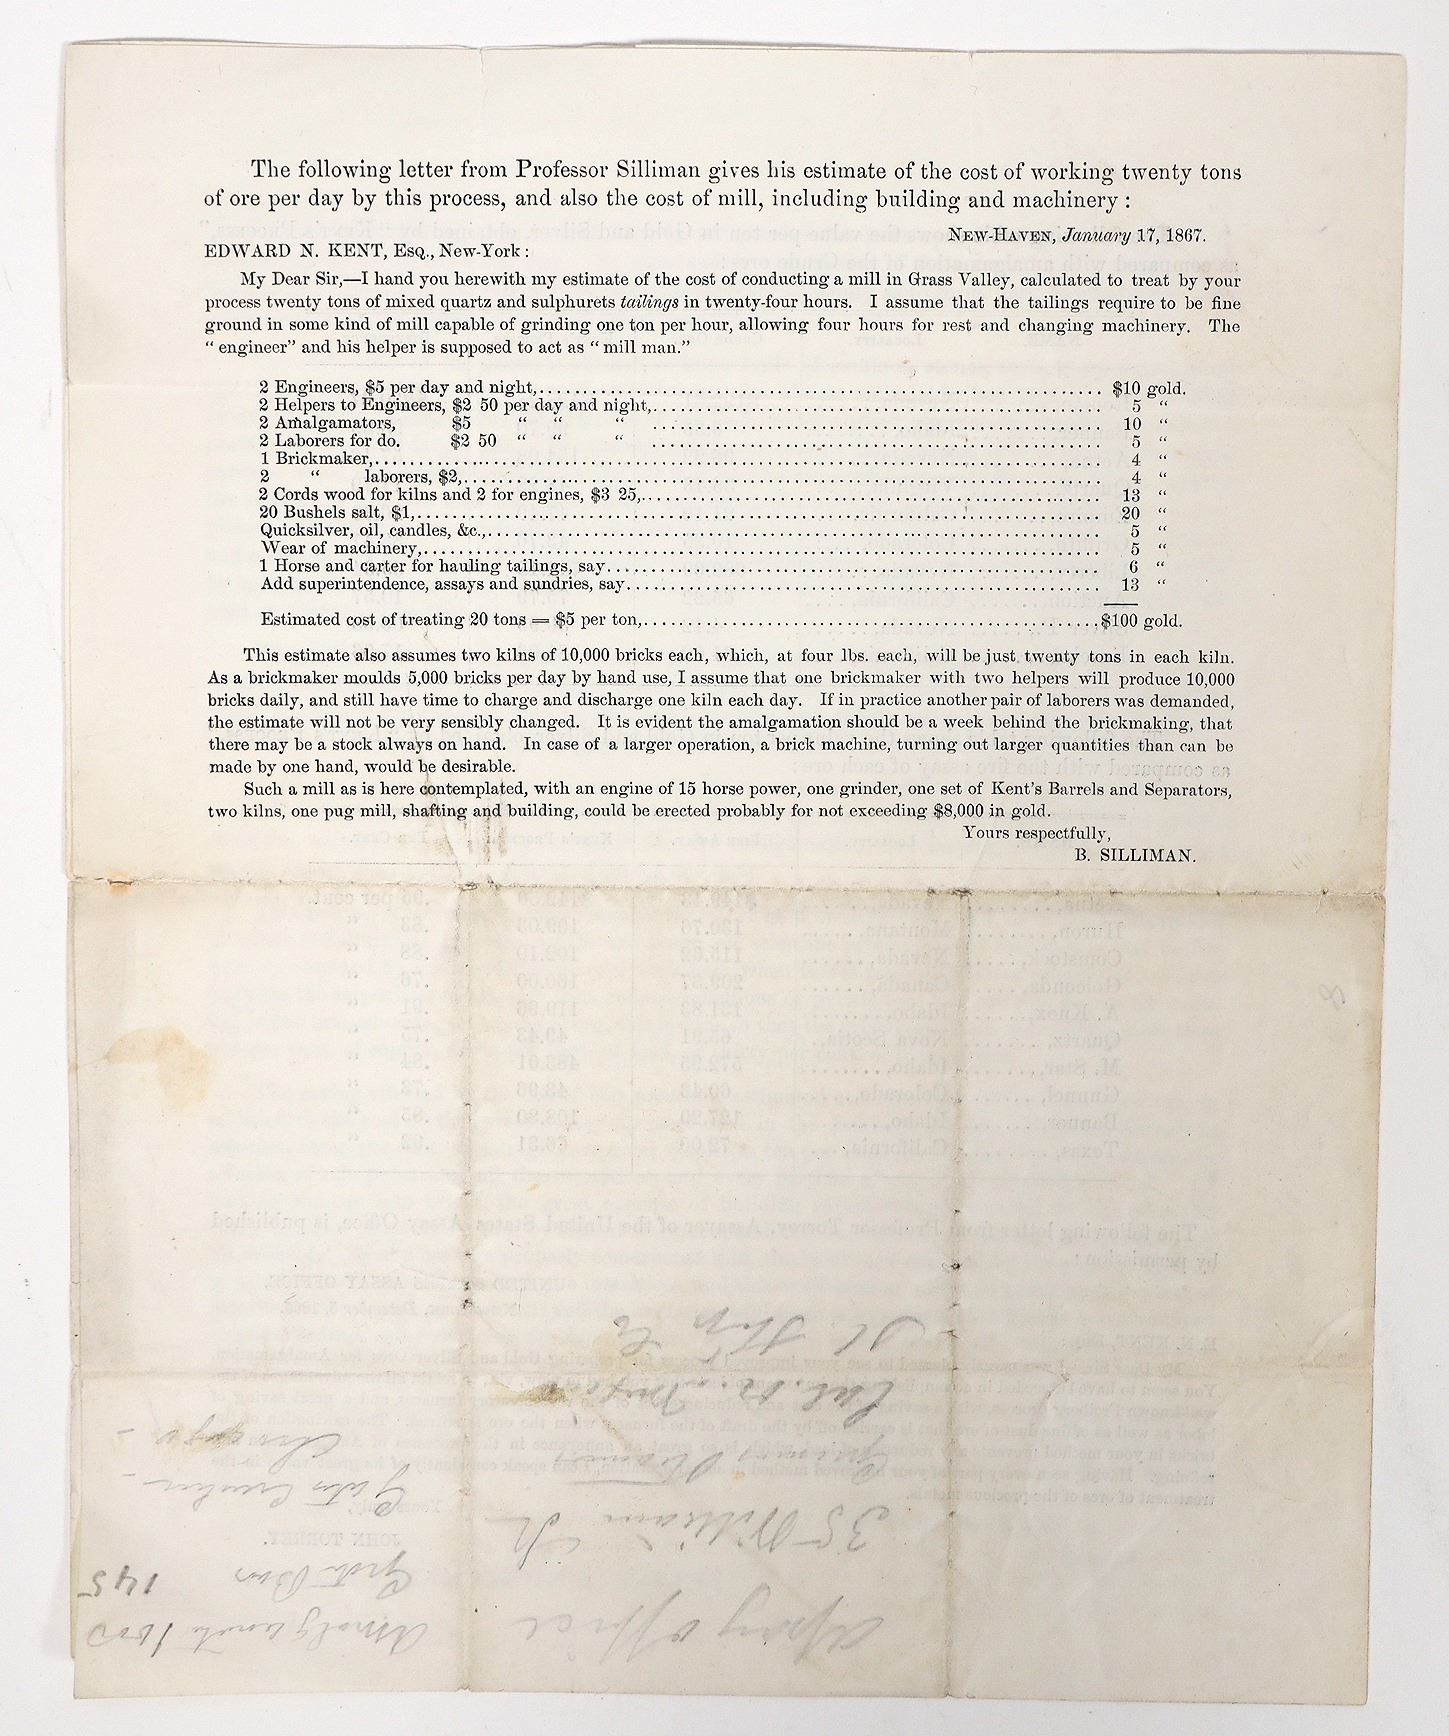 The following letter from Professor Silliman gives his estimate of the cost of working twenty tons
of ore per day by this process, and also the cost of mill, including building and machinery :
New-Haven, January 17, 1867.
EDWARD N. KENT, Esq., New-York :
My Dear Sir,—I hand you herewith my estimate of the cost of conducting a mill in Grass Valley, calculated to treat by your
process twenty tons of mixed quartz and sulphurets tailings in twenty-four hours. I assume that the tailings require to be fine
ground in some kind of mill capable of grinding one ton per hour, allowing four hours for rest and changing machinery. The
“ engineer” and his helper is supposed to act as “ mill man.”
2 Engineers, $5 per day and night,........ $10 gold.
2 Helpers to Engineers, $2 50 per day and night,........ 5 “
2 Amalgamators, $5 “ “ “ ........ 10 “
2 Laborers for do. $2 50 “ “ “ ........ 5 “
1 Brickmaker,........ 4 “
2 “ laborers, $2,........ 4 “
2 Cords wood for kilns and 2 for engines, $3 25,........ 13 “
20 Bushels salt, $1,........ 20 “
Quicksilver, oil, candles, &c.,........ 5 “
Wear of machinery,........ 5 “
1 Horse and carter for hauling tailings, say........ 6 “
Add superintendence, assays and sundries, say........ 13 “
Estimated cost of treating 20 tons = $5 per ton,........ $100 gold.
This estimate also assumes two kilns of 10,000 bricks each, which, at four lbs. each, will be just twenty tons in each kiln.
As a brickmaker moulds 5,000 bricks per day by hand use, I assume that one brickmaker with two helpers will produce 10,000
bricks daily, and still have time to charge and discharge one kiln each day. If in practice another pair of laborers was demanded,
the estimate will not be very sensibly changed. It is evident the amalgamation should be a week behind the brickmaking, that
there may be a stock always on hand. In case of a larger operation, a brick machine, turning out larger quantities than can be
made by one hand, would be desirable.
Such a mill as is here contemplated, with an engine of 15 horse power, one grinder, one set of Kent's Barrels and Separators,
two kilns, one pug mill, shafting and building, could be erected probably for not exceeding $8,000 in gold.
Yours respectfully,
B. SILLIMAN.
office
35 William St
145
1000
Chicago